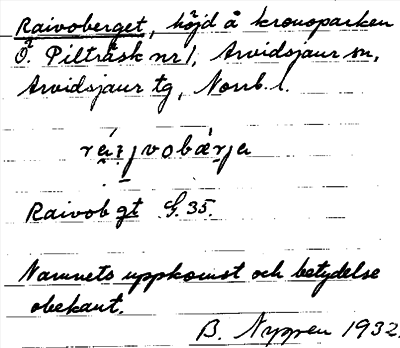 Raivoberget, höjd å kronoparken
Ö. Pilträsk nr 1, Arvidsjaur sn,
Arvidsjaur tg, Norrb. l.
Raivob gt G. 35.
Namnets uppkomst och betydelse
obekant.
B. Nyppen 1932.